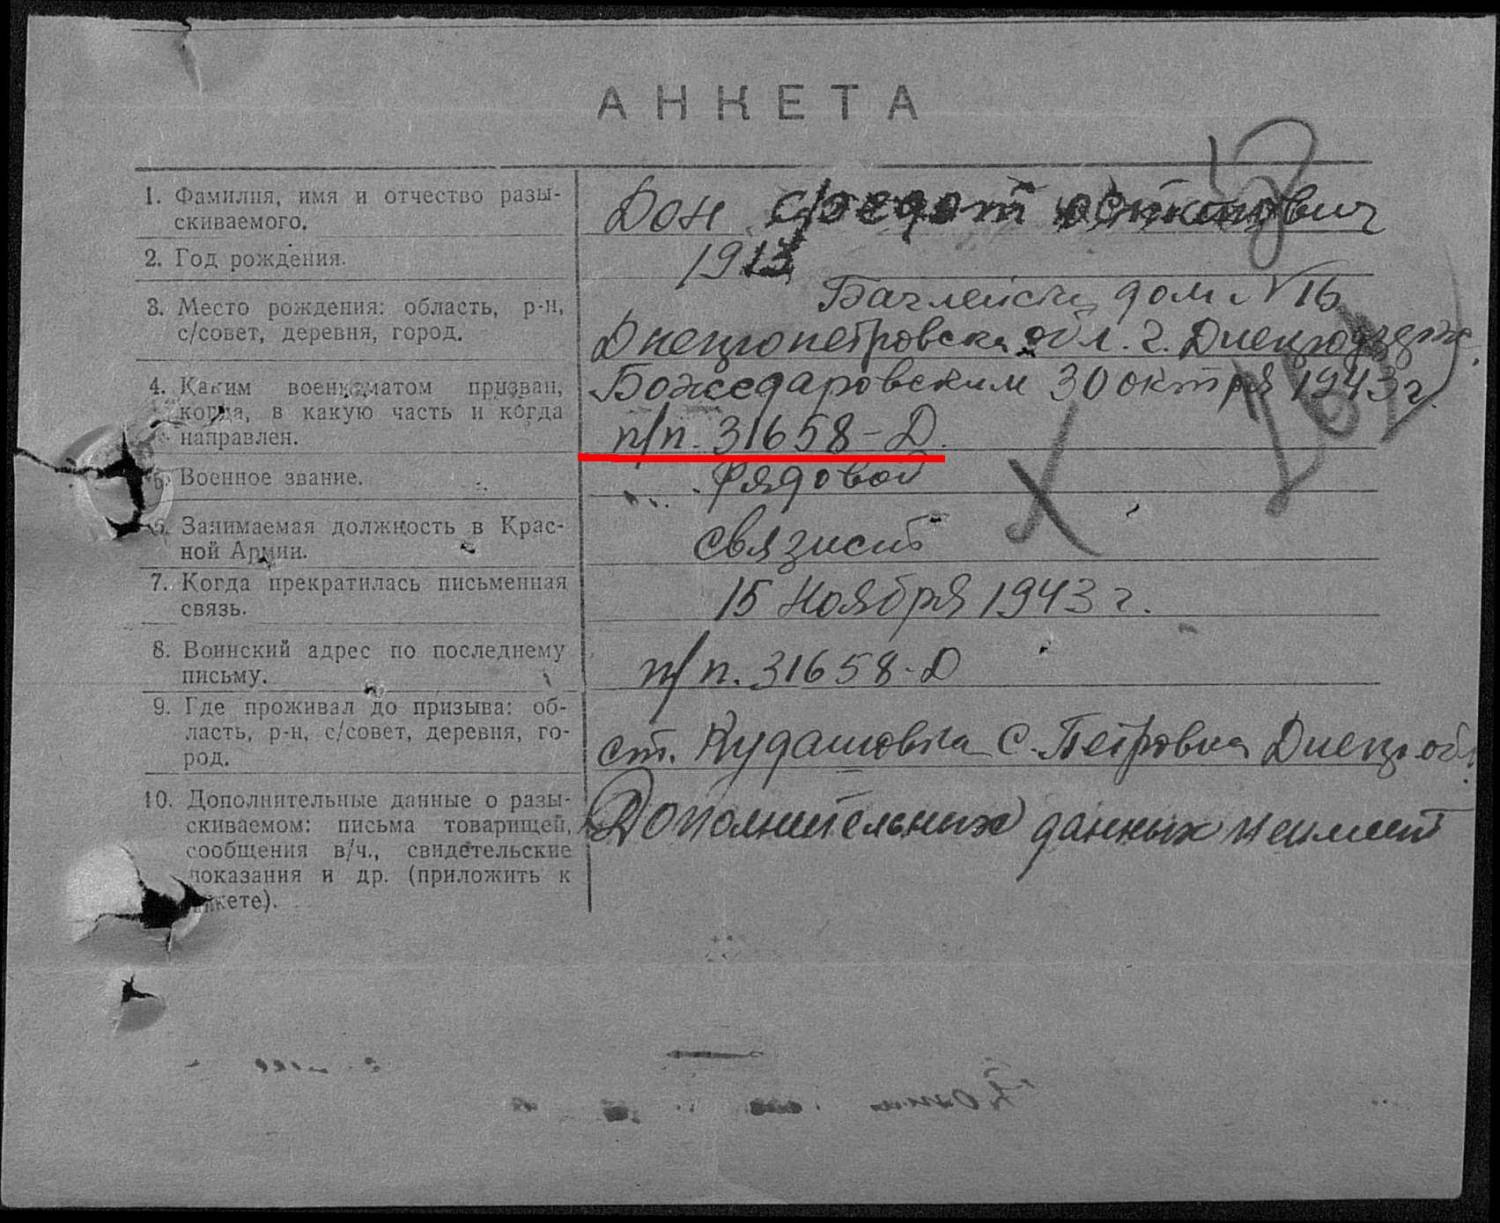 АНКЕТА
1. Фамилия, имя и отчество разы-
скиваемого.
Дон Федот
2. Год рождения.
1913
3. Место рождения: область, р-н,
с/совет, деревня, город.
дом N 16
Днепропетровска обл. г. Днепродзерж.
4. Каким военкоматом призван,
когда, в какую часть и когда
направлен.
Божедаровским 30 октября 1943 г.
п/п. 31658-Д.
5. Военное звание.
Рядовой
6. Занимаемая должность в Крас-
ной Армии.
связист
7. Когда прекратилась письменная
связь.
15 Ноября 1943 г.
8. Воинский адрес по последнему
письму.
п/п. 31658-Д
9. Где проживал до призыва: об-
ласть, р-н, с/совет, деревня, го-
род.
ст. Кудашовка С. Петровка Днепр. обл.
10. Дополнительные данные о разы-
скиваемом: письма товарищей,
сообщения в/ч., свидетельские
показания и др. (приложить к
анкете).
Дополнительных данных неимеет